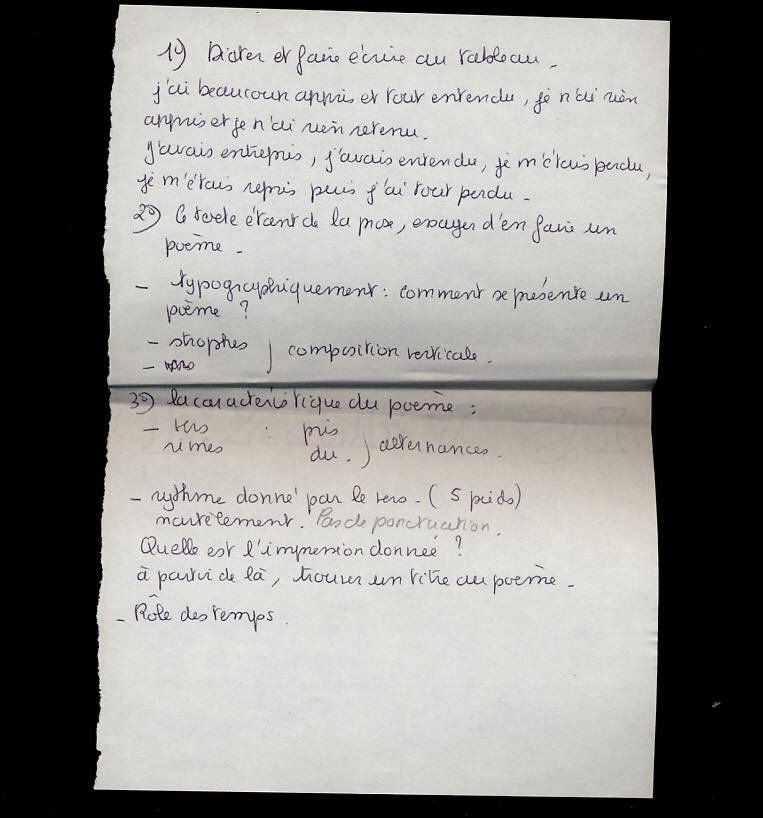 1º) Dicter et faire écrire au tableau.
j'ai beaucoup appris et tout entendu, je n'ai rien
appris et je n'ai rien retenu.
j'avais entrepris, j'avais entendu, je m'étais perdu,
je m'étais repris puis j'ai tout perdu.
2º) Ce texte étant de la prose, essayer d'en faire un
poème.
- typographiquement : comment se présente un
poème ?
- strophes
- vers } composition verticale.
3º) la caractéristique du poème :
- vers : pris
rimes du. } alternances.
- rythme donné par le vers - ( 5 pieds)
martèlement. Pas de ponctuation.
Quelle est l'impression donnée ?
à partir de là, trouver un titre au poème.
- Rôle des temps.